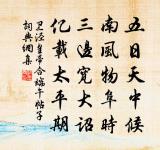 五日天中候
南風物阜時
三邊寬大詔
億載太平期
卫泾皇帝合端午帖子
詞典網集